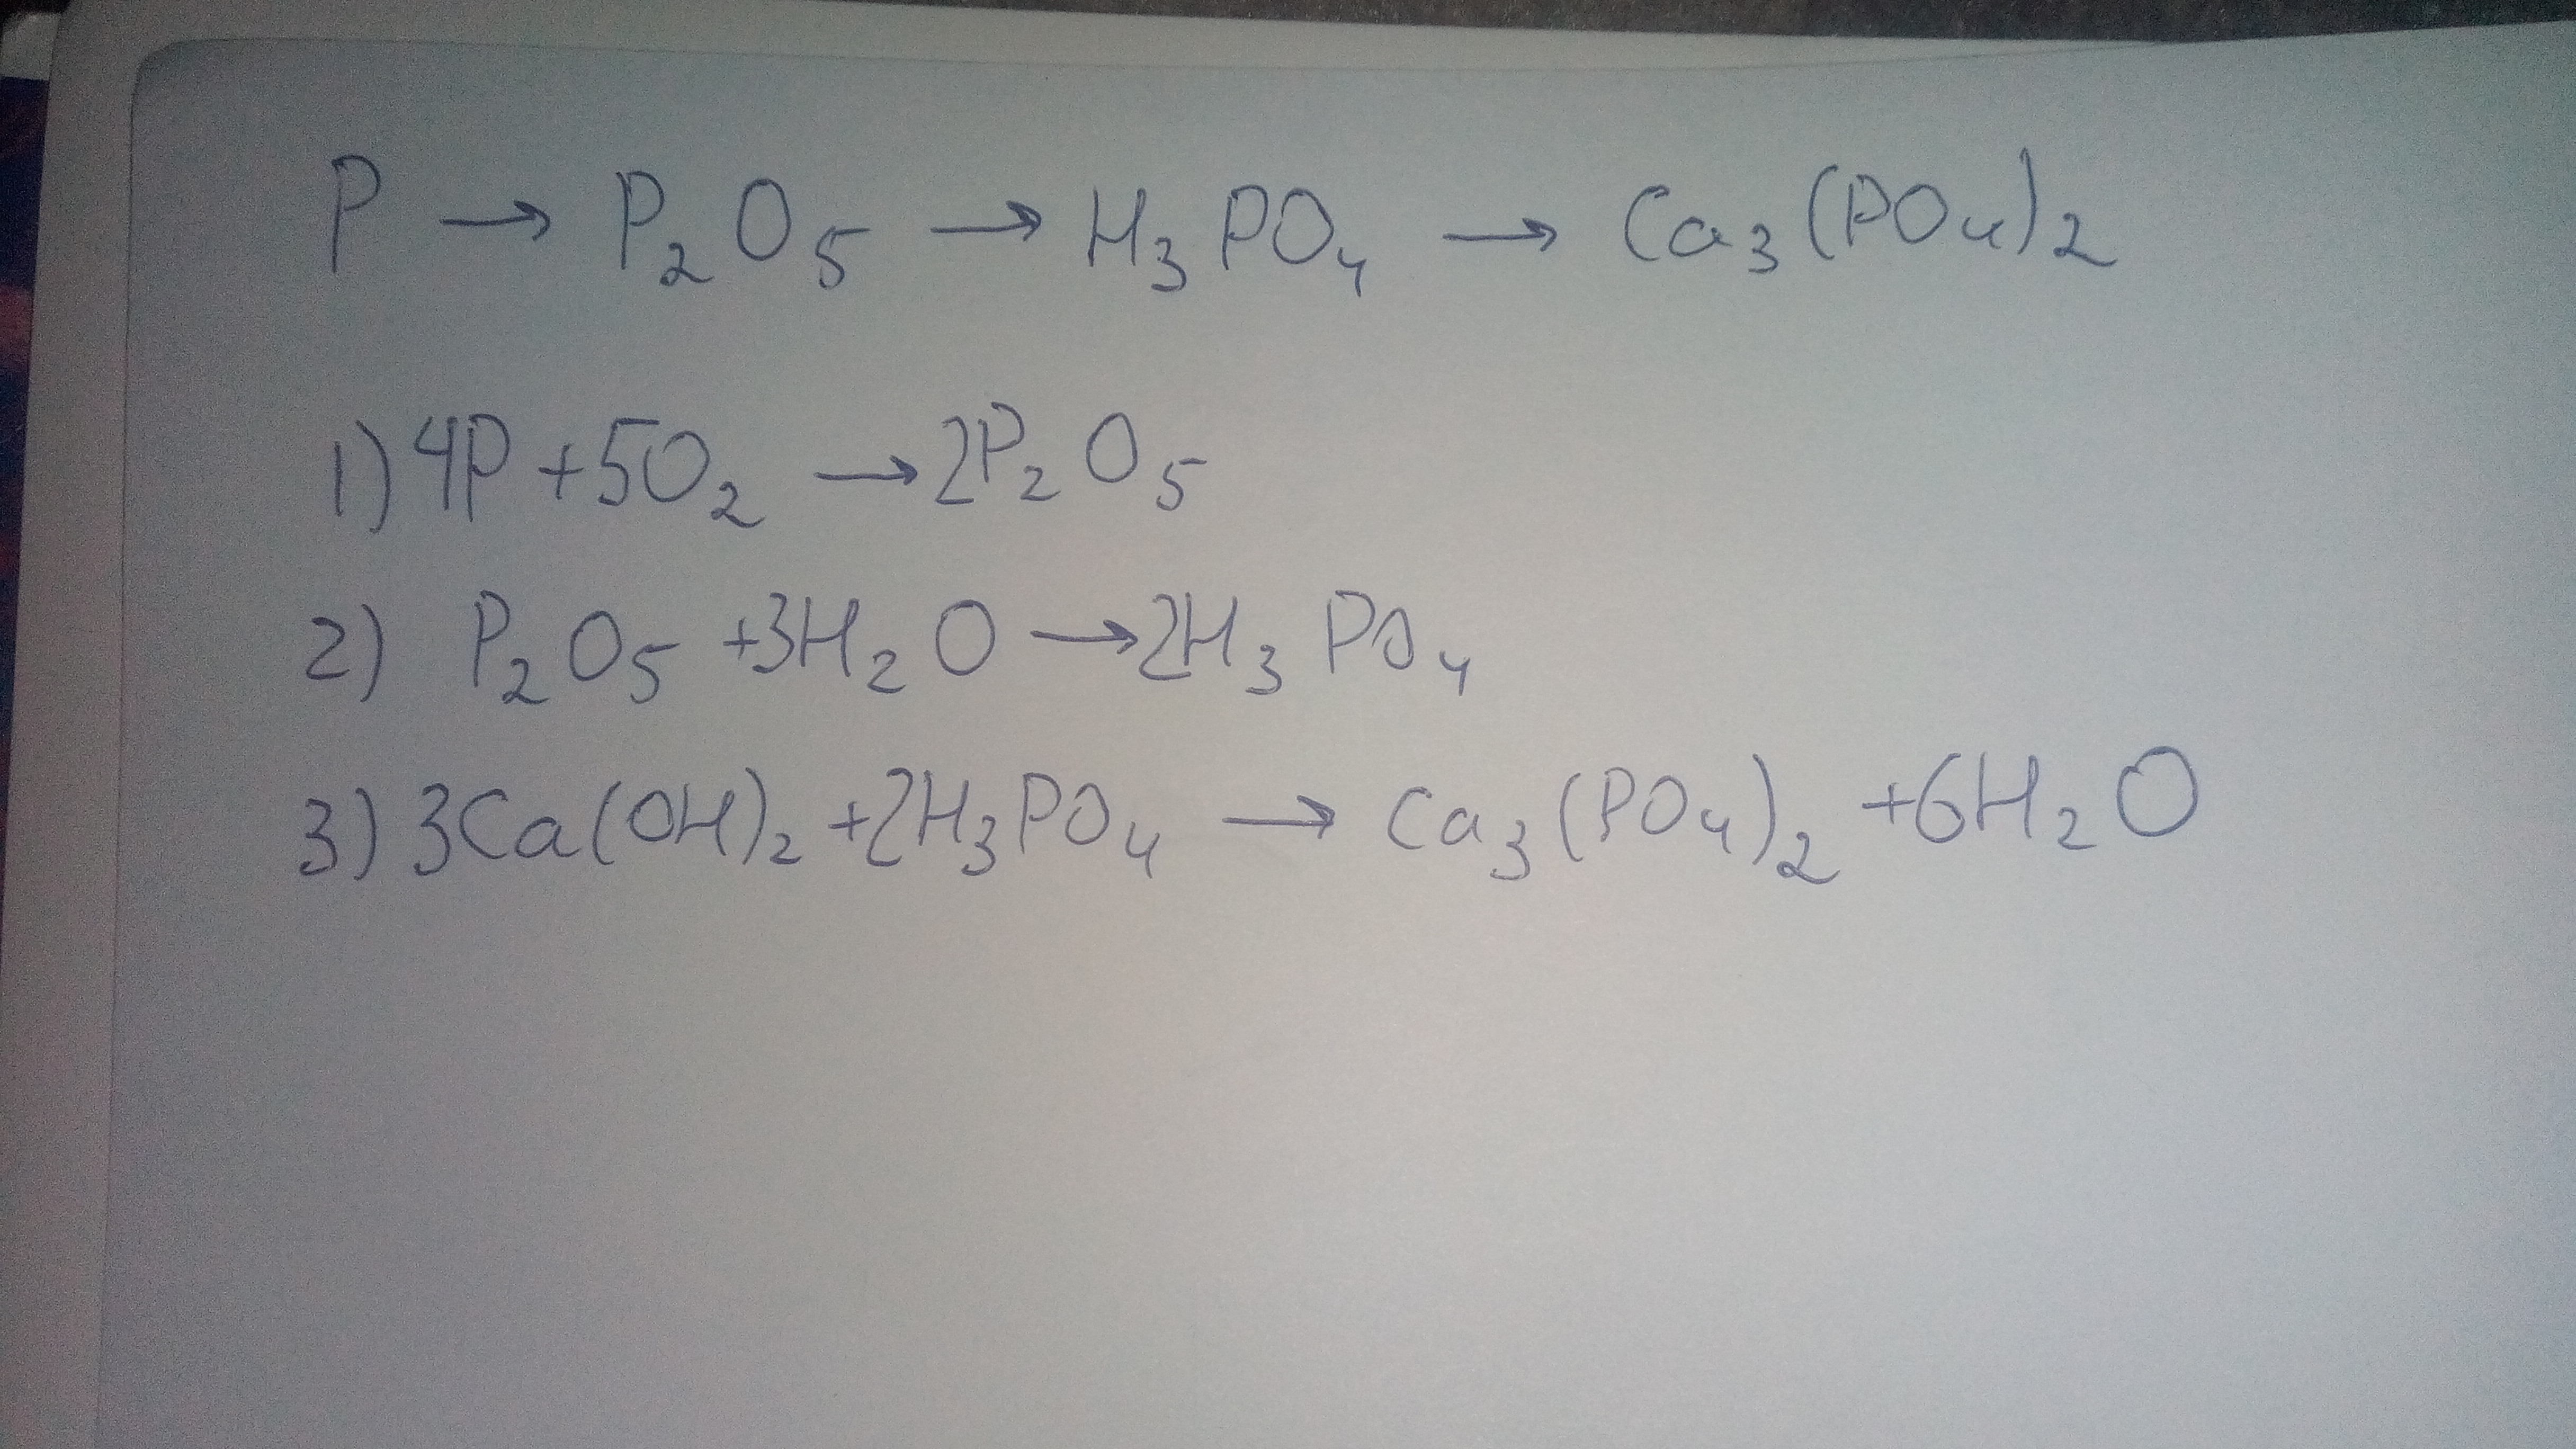 P → P₂O₅ → H₃PO₄ → Ca₃(PO₄)₂
1) 4P + 5O₂ → 2P₂O₅
2) P₂O₅ + 3H₂O → 2H₃PO₄
3) 3Ca(OH)₂ + 2H₃PO₄ → Ca₃(PO₄)₂ + 6H₂O